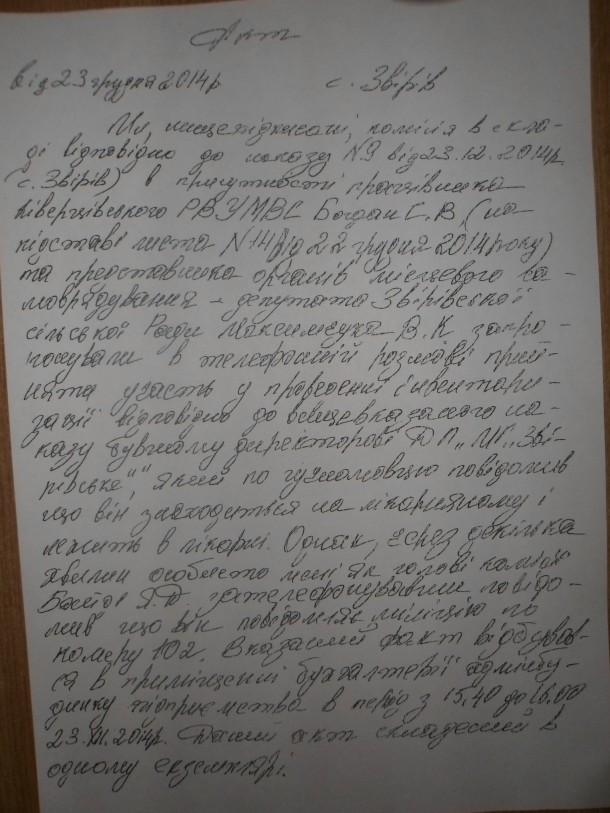 Акт
від 23 грудня 2014р с. Звірів
Ми, нижчепідписані, комісія в скла-
ді відповідно до наказу №9 від 23.12.2014р
с. Звірів) в присутності працівника
Ківерцівського РВУМВС Богдан С.В (на
підставі листа №141 від 22 грудня 2014 року)
та представника органів місцевого са-
моврядування - депутата Звірівської
сільської Ради Максимчука В.К запро-
понували в телефонній розмові прий-
няти участь у проведенні інвентари-
зації відповідно до вищевказаного на-
казу бувшому директорові ДП „МГ „Зві-
рівське", який по гучномовцю повідомив
що він знаходиться на лікарняному і
лежить в лікарні. Однак, через декілька
хвилин особисто мені як голові комісії
зателефонувавши повідо-
мив що він повідомляє міліцію по
номеру 102. Вказаний факт відбував-
ся в приміщенні бухгалтерії адмінбу-
динку підприємства в період з 15.40 до 16.00
23.XII.2014р. Даний акт складений в
одному екземплярі.